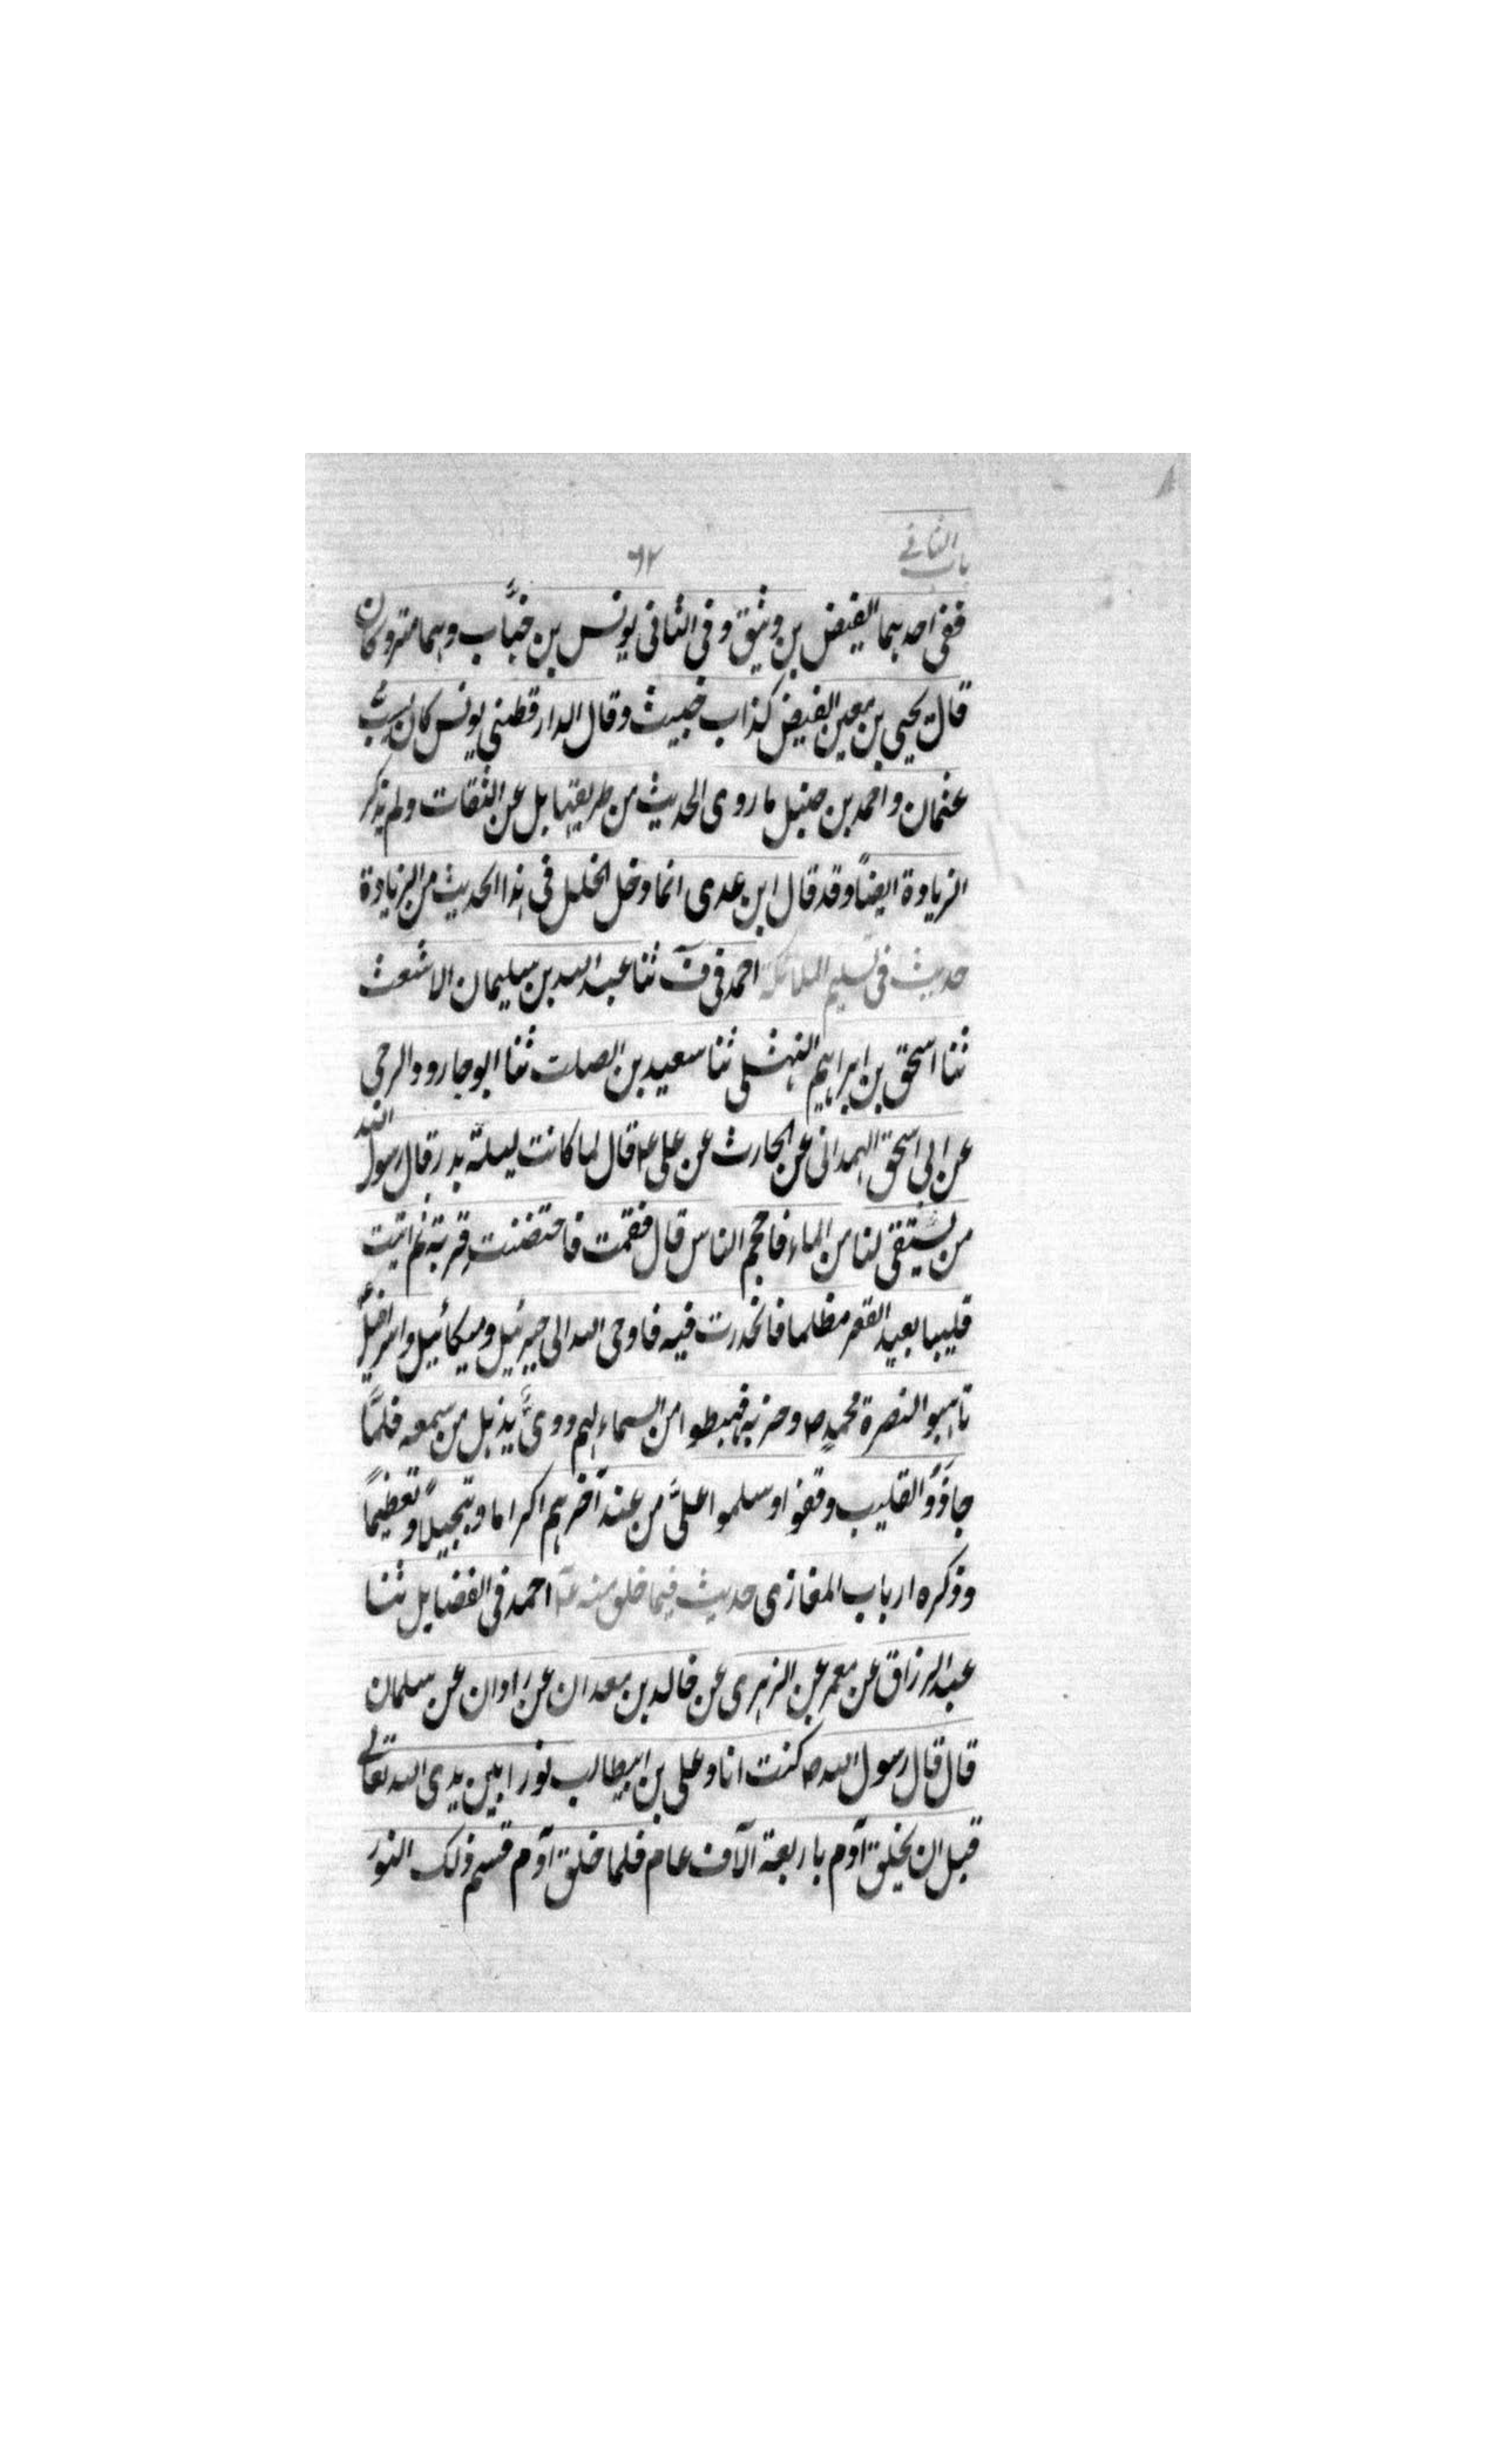 باب الثانے
٦٢
ففى احدہما الفیض بن وثیق وفى الثانى یونس بن خبَّاب وہما متروکان
قال یحیى بن معین الفیض کذاب خبیث وقال الدارقطنى یونس کان یسبُّ
عثمان واحمد بن حنبل ما روى الحدیث من طریقہما بل عن الثقات ولم یذکر
الزیادة ایضًا وقد قال ابن عدى انما دخل الخلل فى ہذا الحدیث من الزیادة
حدیث فى تسلیم الملائکة احمد فى فٓ ثنا عبد اللہ بن سلیمان الاشعث
ثنا اسحق بن ابراہیم النہشلى ثنا سعید بن الصلت ثنا ابو جارود الرحبى
عن ابى اسحق الہمدانى عن الحارث عن على ع قال لما کانت لیلة بدر قال رسول اللہ
من یستقى لنا من الماء فاحجم الناس قال فقمت فاحتضنت قربة ثم اتیت
قلیبا بعید القعر مظلما فانحدرت فیہ فاوحى اللہ الى جبرئیل ومیکائیل واسرافیل
تاہبوا لنصرة محمدٍ ص وحزبہ فہبطوا من السماء لہم دوىٌّ یذہل من سمعہ فلمَّا
جاؤَوُ القلیب وقفوا وسلموا علىَّ من عند آخرہم اکراما وتبجیلًا وتعظیمًا
وذکرہ ارباب المغازى حدیث فیما خلق منہ ع احمد فى الفضایل ثنا
عبد الرزاق عن معمر عن الزہرى عن خالد بن معدان عن زاذان عن سلمان
قال قال رسول اللہ ص کنت انا وعلى بن ابیطالب نورا بین یدى اللہ تعالى
قبل ان یخلق آدم باربعة آلاف عام فلما خلق آدم قسم ذلک النور